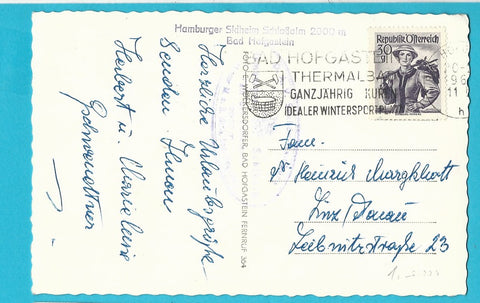 Hamburger Skiheim Schloßalm 2000 m
Bad Hofgastein
Herzliche Urlaubsgrüße
senden Ihnen
Herbert u. Marielene
BAD HOFGASTEIN
THERMALBAD
GANZJÄHRIG KURB
IDEALER WINTERSPORTPL
11
h
Republik Österreich
30 g
BAD HOFGASTEIN FERNRUF 364
Fam.
Dr. Heinrich
Linz/Donau
Leibnitzstraße 23